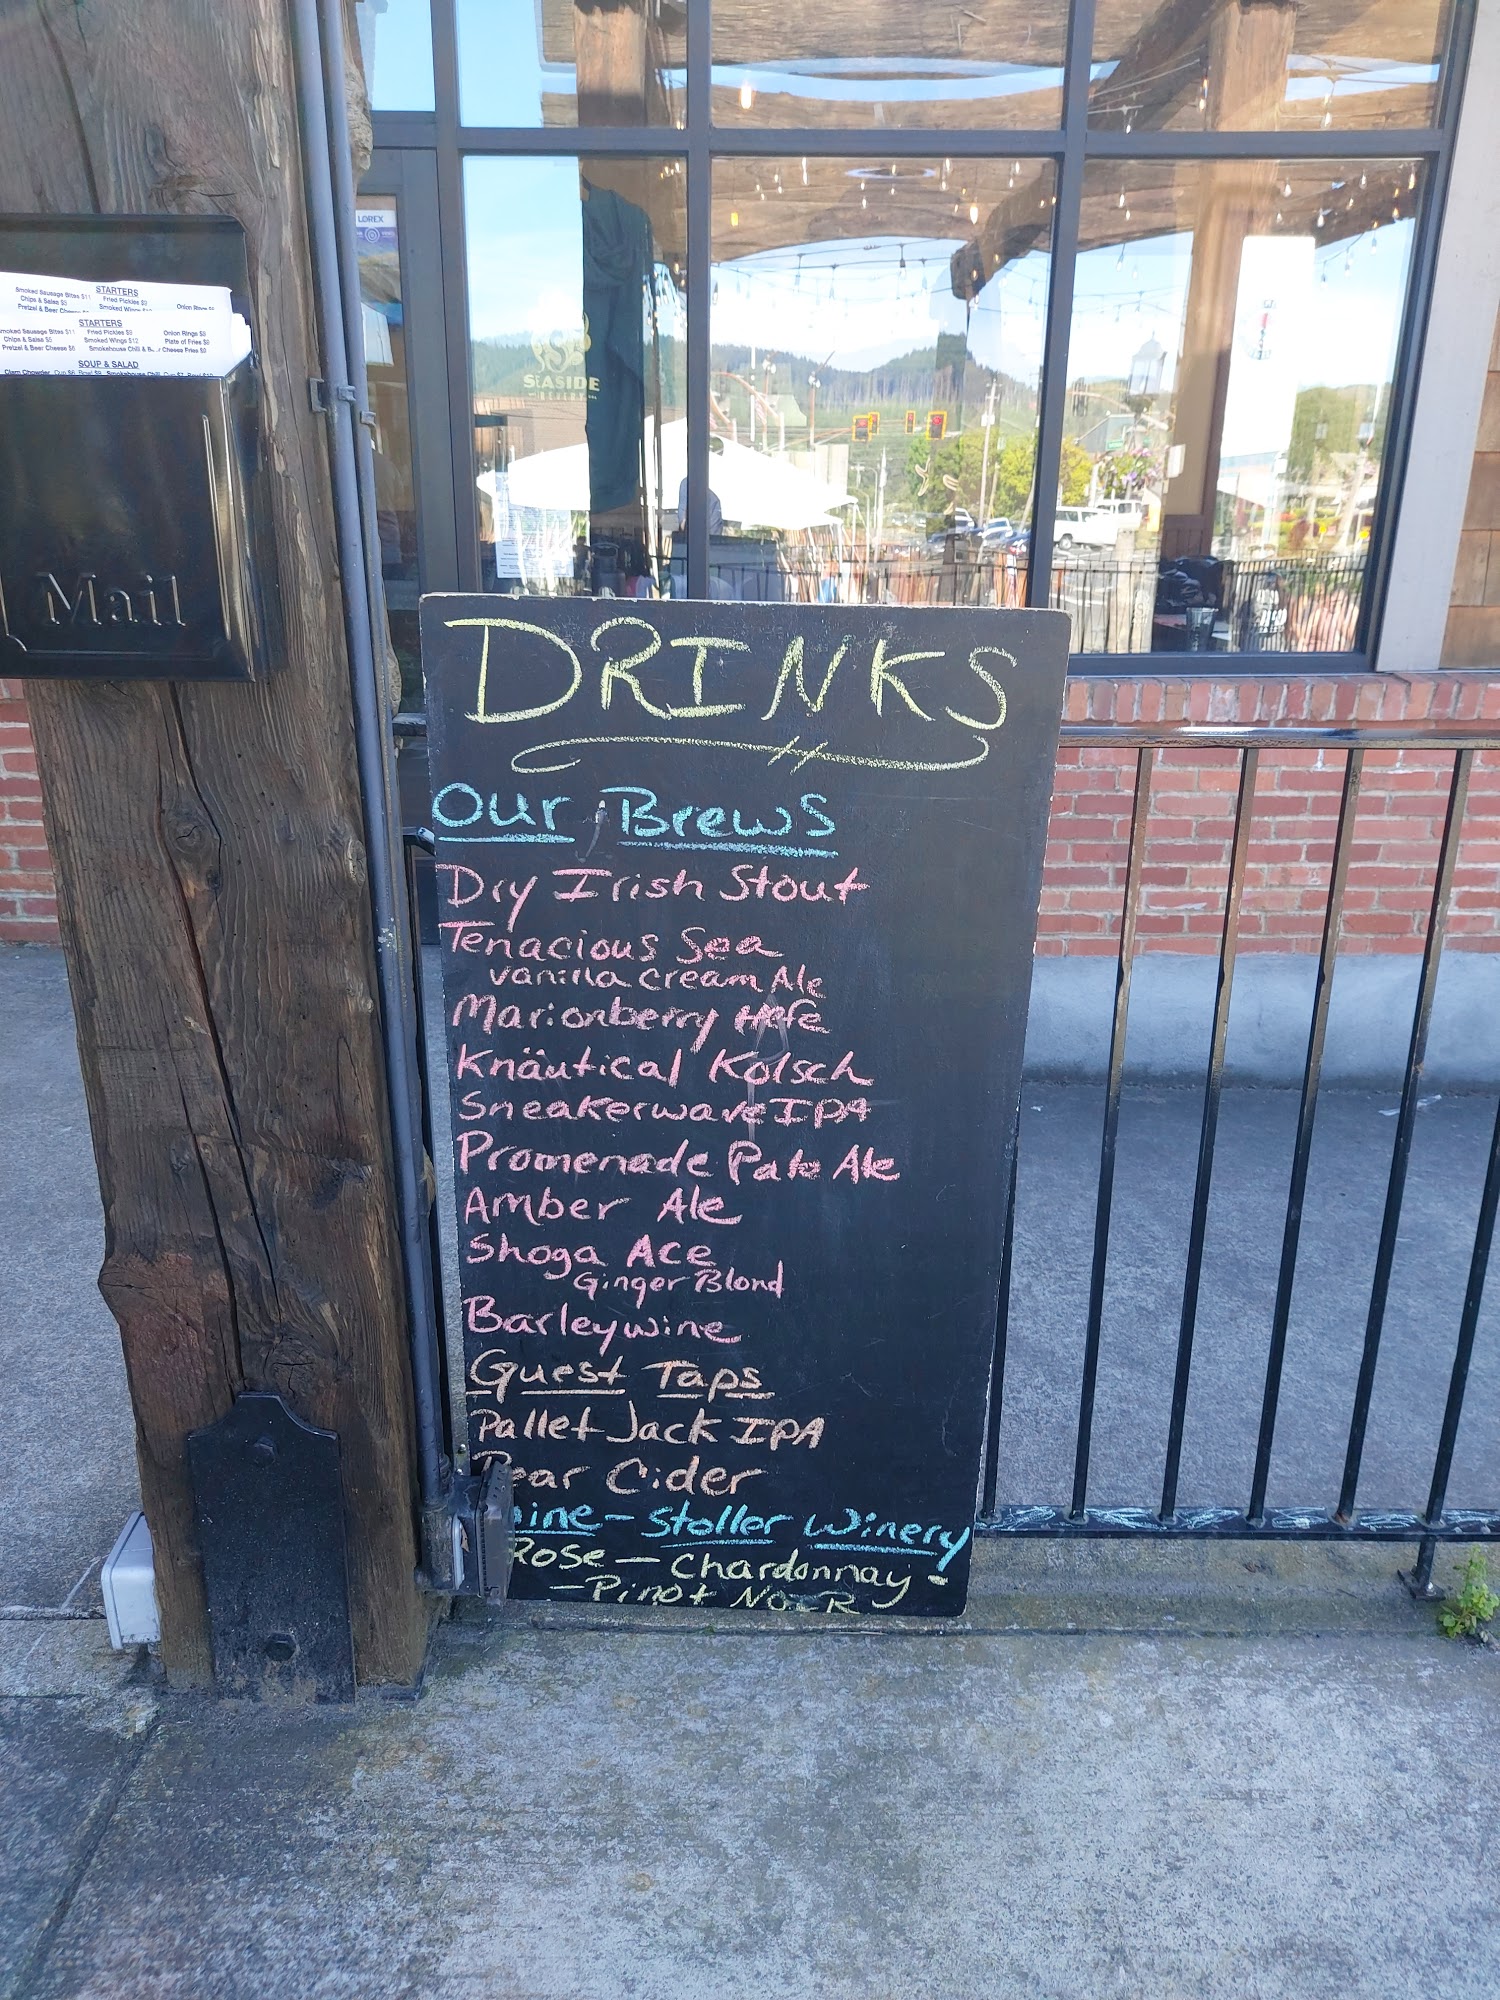 LOREX
STARTERS
Smoked Sausage Bites $11
Fried Pickles
Onion Rings
Chips & Salsa $5
Smoked Wings
Pretzel & Beer
STARTERS
Smoked Sausage Bites $11
Fried Pickles $8
Onion Rings $8
Chips & Salsa $5
Smoked Wings $12
Plate of Fries $8
Pretzel & Beer Cheese $8
Smokehouse Chili & Cheese Fries $9
SOUP & SALAD
Clam Chowder
Smokehouse Chili
Mail
SEASIDE
DRINKS
Our Brews
Dry Irish Stout
Tenacious Sea
Vanilla Cream Ale
Marionberry Hefe
Knäutical Kolsch
Sneakerwave IPA
Promenade Pale Ale
Amber Ale
Shoga Ace
Ginger Blond
Barleywine
Guest Taps
Pallet Jack IPA
Pear Cider
Wine - Stoller Winery
Rose - Chardonnay -
- Pinot NoiR